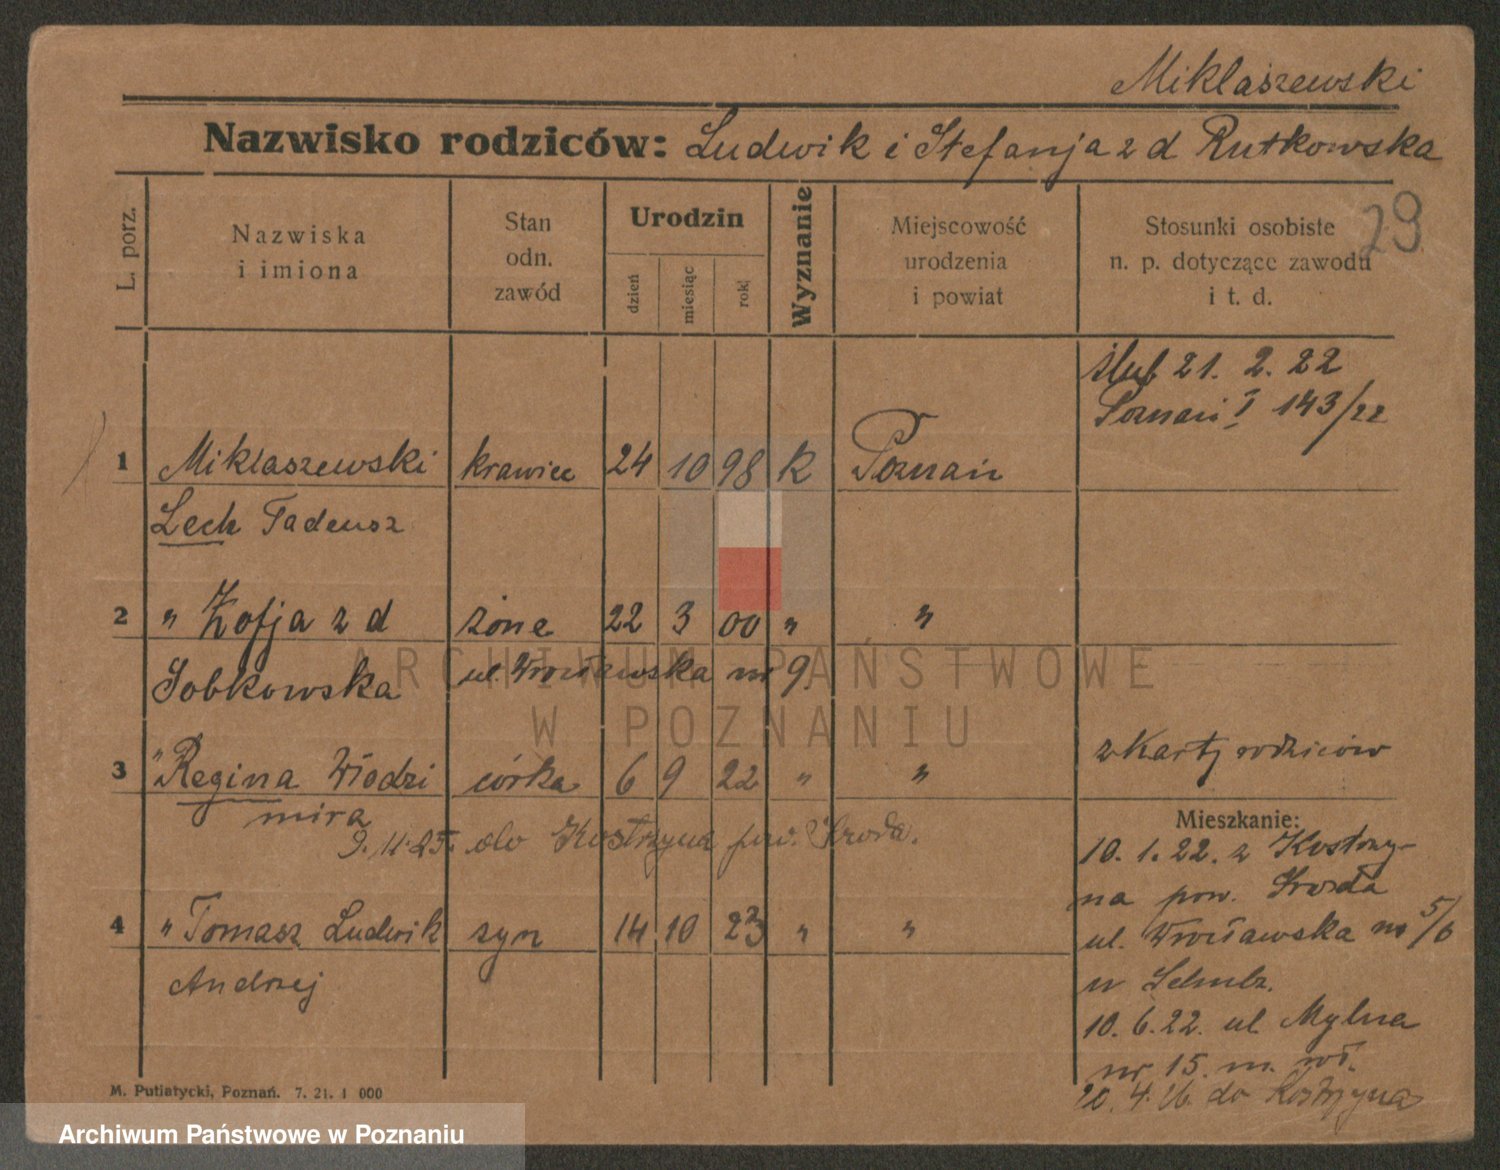 Miklaszewski
Nazwisko rodziców: Ludwik i Stefanja z d Rutkowska
29
L. porz.
Nazwiska
i imiona
Stan
odn.
zawód
Urodzin
dzień
miesiąc
rok
Wyznanie
Miejscowość
urodzenia
i powiat
Stosunki osobiste
n. p. dotyczące zawodu
i t. d.
ślub 21. 2. 22
Poznań I 143/22
1 Miklaszewski krawiec 24 10 98 k Poznań
Lech Tadeusz
2 " Zofja z d żona 22 3 00 " "
Sobkowska ul. Wrocławska nr 9.
3 " Regina Włodzi córka 6 9 22 " " z karty rodziców
mira
9. 11. 25. do Kostrzyna pow. Środa.
Mieszkanie:
10. 1. 22. z Kostrzy-
na pow. Środa
4 " Tomasz Ludwik syn 14 10 23 " "
Andrzej
ul. Wrocławska nr 5/6
u
10. 6. 22. ul. Mylna
nr 15. m. wł.
20. 4. 26. do Kostrzyna
M. Putiatycki, Poznań. 7. 21. 1 000
ARCHIWUM PAŃSTWOWE
W POZNANIU
Archiwum Państwowe w Poznaniu